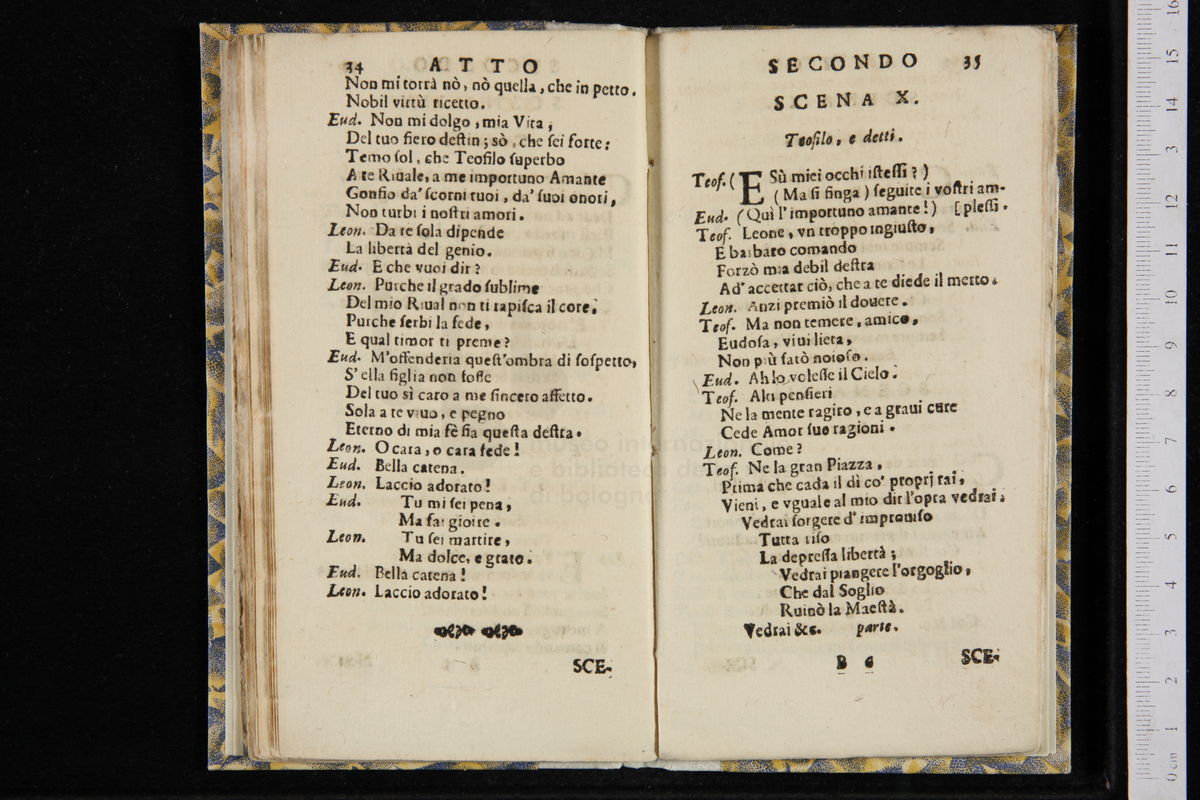 34 ATTO
Non mi torrà nò, nò quella, che in petto.
Nobil virtù ricetto.
Eud. Non mi dolgo, mia Vita,
Del tuo fiero deſtin; sò, che ſei forte:
Temo ſol, che Teofilo ſuperbo
A te Riuale, a me importuno Amante
Gonfio da' ſcorni tuoi, da' ſuoi onori,
Non turbi i noſtri amori.
Leon. Da te ſola dipende
La libertà del genio.
Eud. E che vuoi dir?
Leon. Purche il grado ſublime
Del mio Riual non ti rapiſca il core,
Purche ſerbi la fede,
E qual timor ti preme?
Eud. M'offenderia queſt'ombra di ſoſpetto,
S' ella figlia non foſſe
Del tuo sì caro a me ſincero affetto.
Sola a te viuo, e pegno
Eterno di mia fè ſia queſta deſtra.
Leon. O cara, o cara fede!
Eud. Bella catena.
Leon. Laccio adorato!
Eud. Tu mi ſei pena,
Ma fai gioire.
Leon. Tu ſei martire,
Ma dolce, e grato.
Eud. Bella catena!
Leon. Laccio adorato!
SCE-
SECONDO 35
SCENA X.
Teofilo, e detti.
Teof. (E Sù miei occhi iſteſſi?)
(Ma ſi finga) ſeguite i voſtri am-
Eud. (Quì l'importuno amante!) [pleſſi.
Teof. Leone, vn troppo ingiuſto,
E barbaro comando
Forzò mia debil deſtra
Ad' accettar ciò, che a te diede il merto.
Leon. Anzi premiò il douere.
Teof. Ma non temere, amico,
Eudoſa, viui lieta,
Non più ſarò noioſo.
Eud. Ah lo voleſſe il Cielo.
Teof. Altri penſieri
Ne la mente ragiro, e a graui cure
Cede Amor ſue ragioni.
Leon. Come?
Teof. Ne la gran Piazza,
Prima che cada il dì co' proprj rai,
Vieni, e vguale al mio dir l'opra vedrai.
Vedrai ſorgere d' improuiſo
Tutta riſo
La depreſſa libertà;
Vedrai piangere l'orgoglio,
Che dal Soglio
Ruinò la Maeſtà.
Vedrai &c. parte.
B 6 SCE-
museo internazionale
e biblioteca de
di bologna